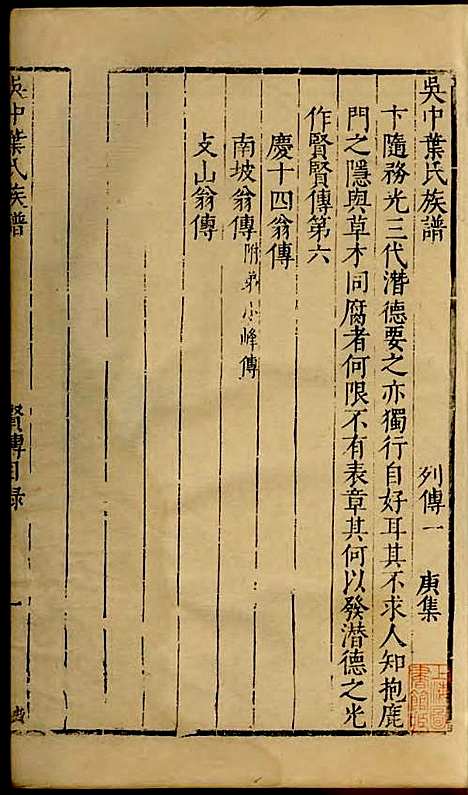 吳中葉氏族譜 列傳一 庚集
卞隨務光三代潛德要之亦獨行自好耳其不求人知抱鹿
門之隱與草木同腐者何限不有表章其何以發潛德之光
作賢賢傳第六
慶十四翁傳
南坡翁傳附弟小峰傳
攴山翁傳
吳中葉氏族譜 賢傳目錄 一
上海圖書館藏